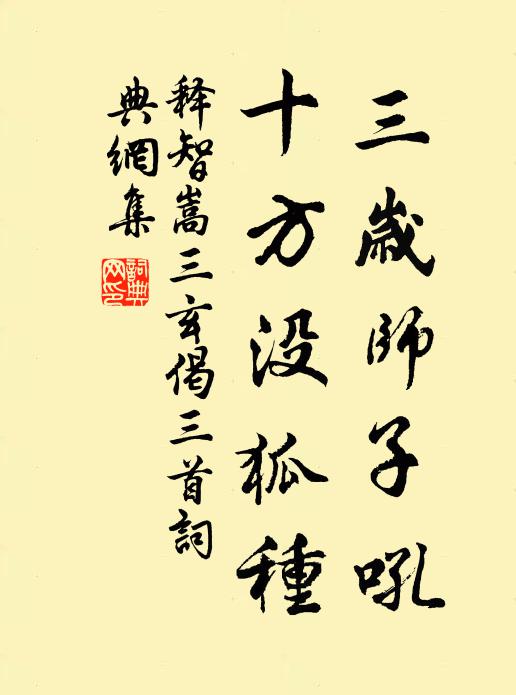 三歲師子吼
十方没狐種
释智嵩三玄偈三首詞
典網集
詞典
网印